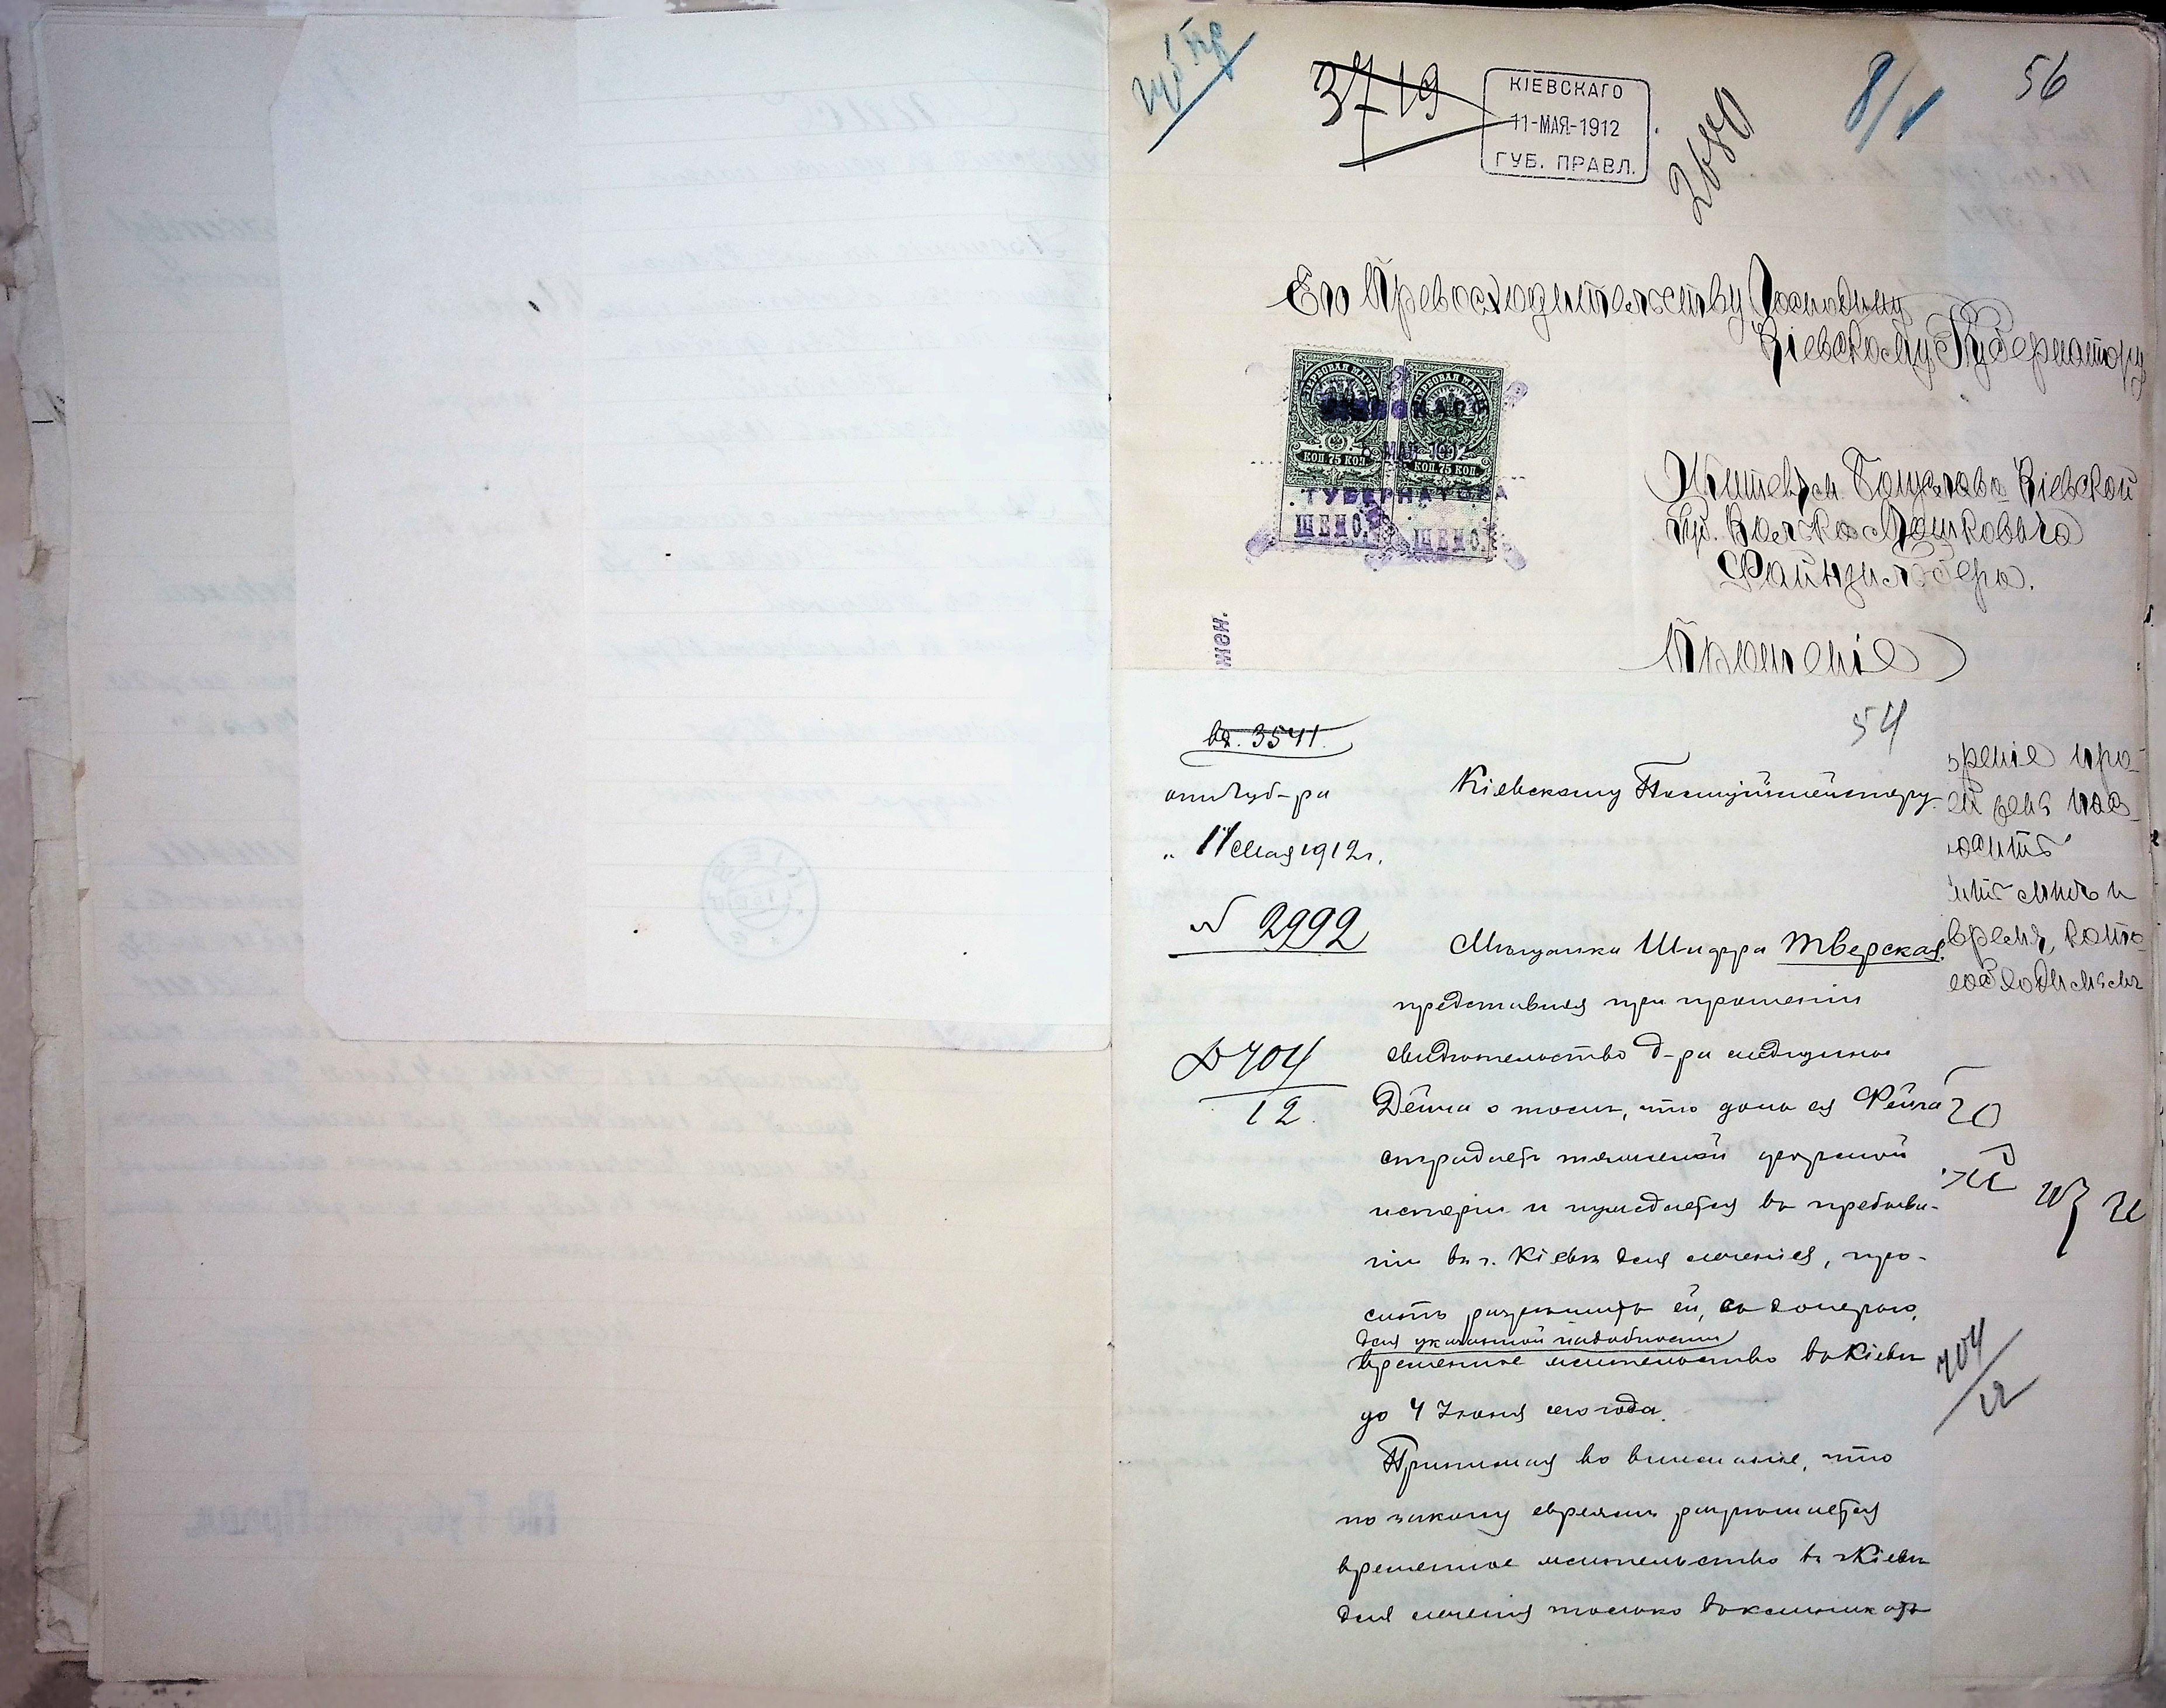 губ пр
3719
КІЕВСКАГО
11-МАЯ-1912
ГУБ. ПРАВЛ.
2680
8/V
56
Его Превосходительству Господину
Кіевскому Губернатору
ГЕРБОВАЯ МАРКА ГЕРБОВАЯ МАРКА
КОП. 75 КОП. КОП. 75 КОП.
МАЯ 1912
ГУБЕРНАТОРА
ШЕНО. ШЕНО.
Богуслава Кіевской
губ. Мошковича
Файнзильбера.
Прошеніе
54
вх. 3541.
отъ Губ-ра
"11 Мая 1912 г.
№ 2992
Д 704
12.
Кіевскому Полиціймейстеру.
Мѣщанка Шифра Тверская,
представивъ при прошеніи
свидѣтельство д-ра медицины
о томъ, что дочь ея Фейга
страдаетъ тяжелой формой
истеріи и нуждается въ пребыва-
ніи въ г. Кіевѣ для леченія, про-
ситъ разрѣшить ей, съ дочерью,
для указанной надобности
временное жительство въ Кіевѣ
до 4 Іюня сего года.
Принимая во вниманіе, что
по закону евреямъ разрѣшается
временное жительство въ г. Кіевѣ
для леченія только въ клиникахъ
зрѣніе про-
время, кото-
20
704
12